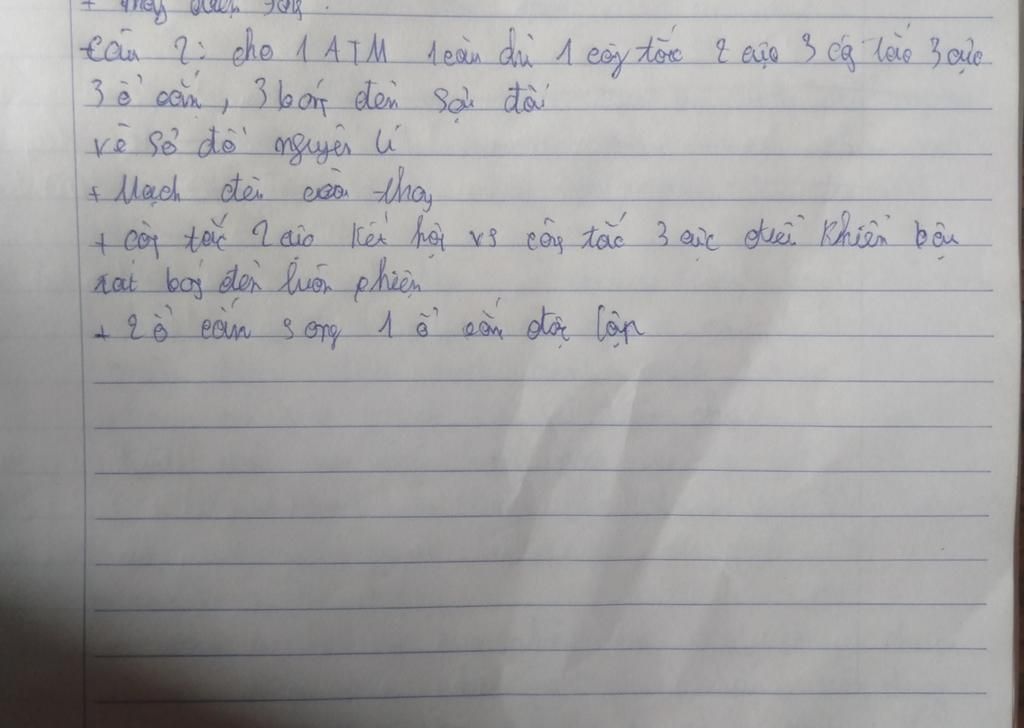 + mạy
Câu 2: cho 1 ATM 1 cầu chì 1 công tắc 2 cực 3 cg tắc 3 cực
3 ổ cắm, 3 bóng đèn sợi đốt
vẽ sơ đồ nguyên lí
+ Mạch đèn cầu thang
+ công tắc 2 cực kết hợp vs công tắc 3 cực điều khiển bộ
hai bóng đèn luân phiên
+ 2 ổ cắm song 1 ổ cắm độc lập